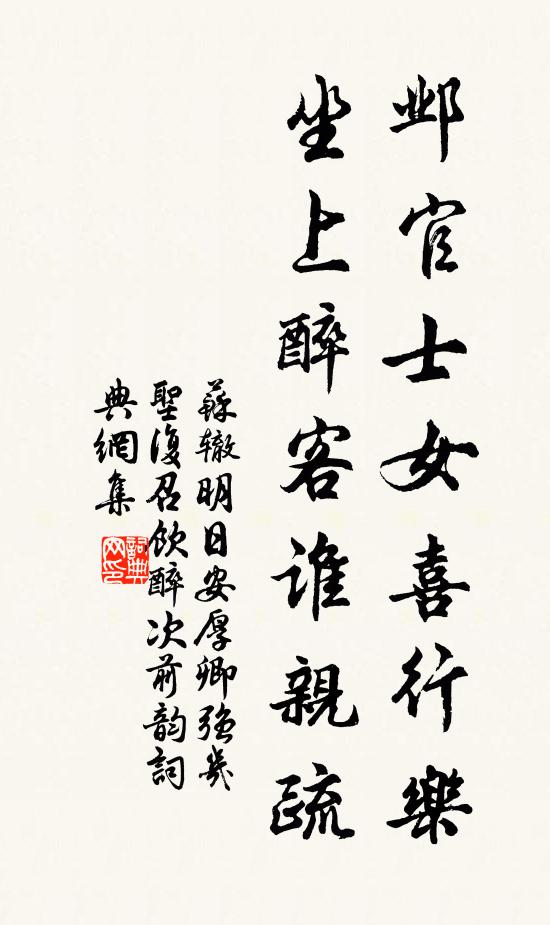 邺官士女喜行樂
坐上醉客谁親疏
蘇辙明日安厚卿强幾
聖復召飲醉次前韵詞
典網集
詞典
网印